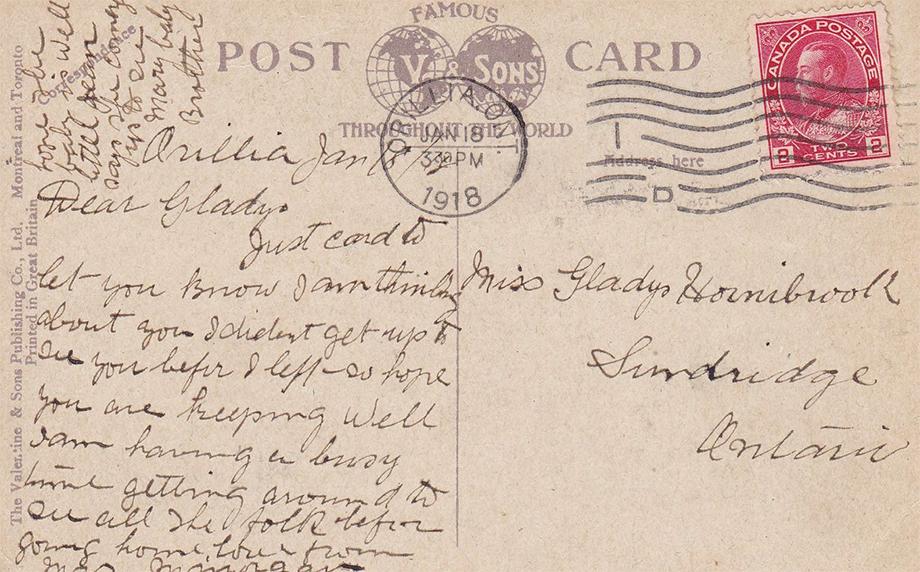 FAMOUS
POST CARD
V. & SONS
THROUGHOUT THE WORLD
Correspondence
Address here
The Valentine & Sons Publishing Co., Ltd. Montreal and Toronto
Printed in Great Britain
ORILLIA, ONT
JAN 18
330 PM
1918
I
D
CANADA POSTAGE
2 TWO CENTS 2
Orillia Jan
Dear Gladys
Just card to
let you know I am thinking
about you I dident get up to
see you befor I left so hope
you are keeping well
I am having a busy
time getting around to
see all the folk befor
going home love from
Mrs
hope the
baby is well
little Jean
says she coming
up to see
Mary baby
Brother
Miss Gladys Hornibrook
Sundridge
Ontario